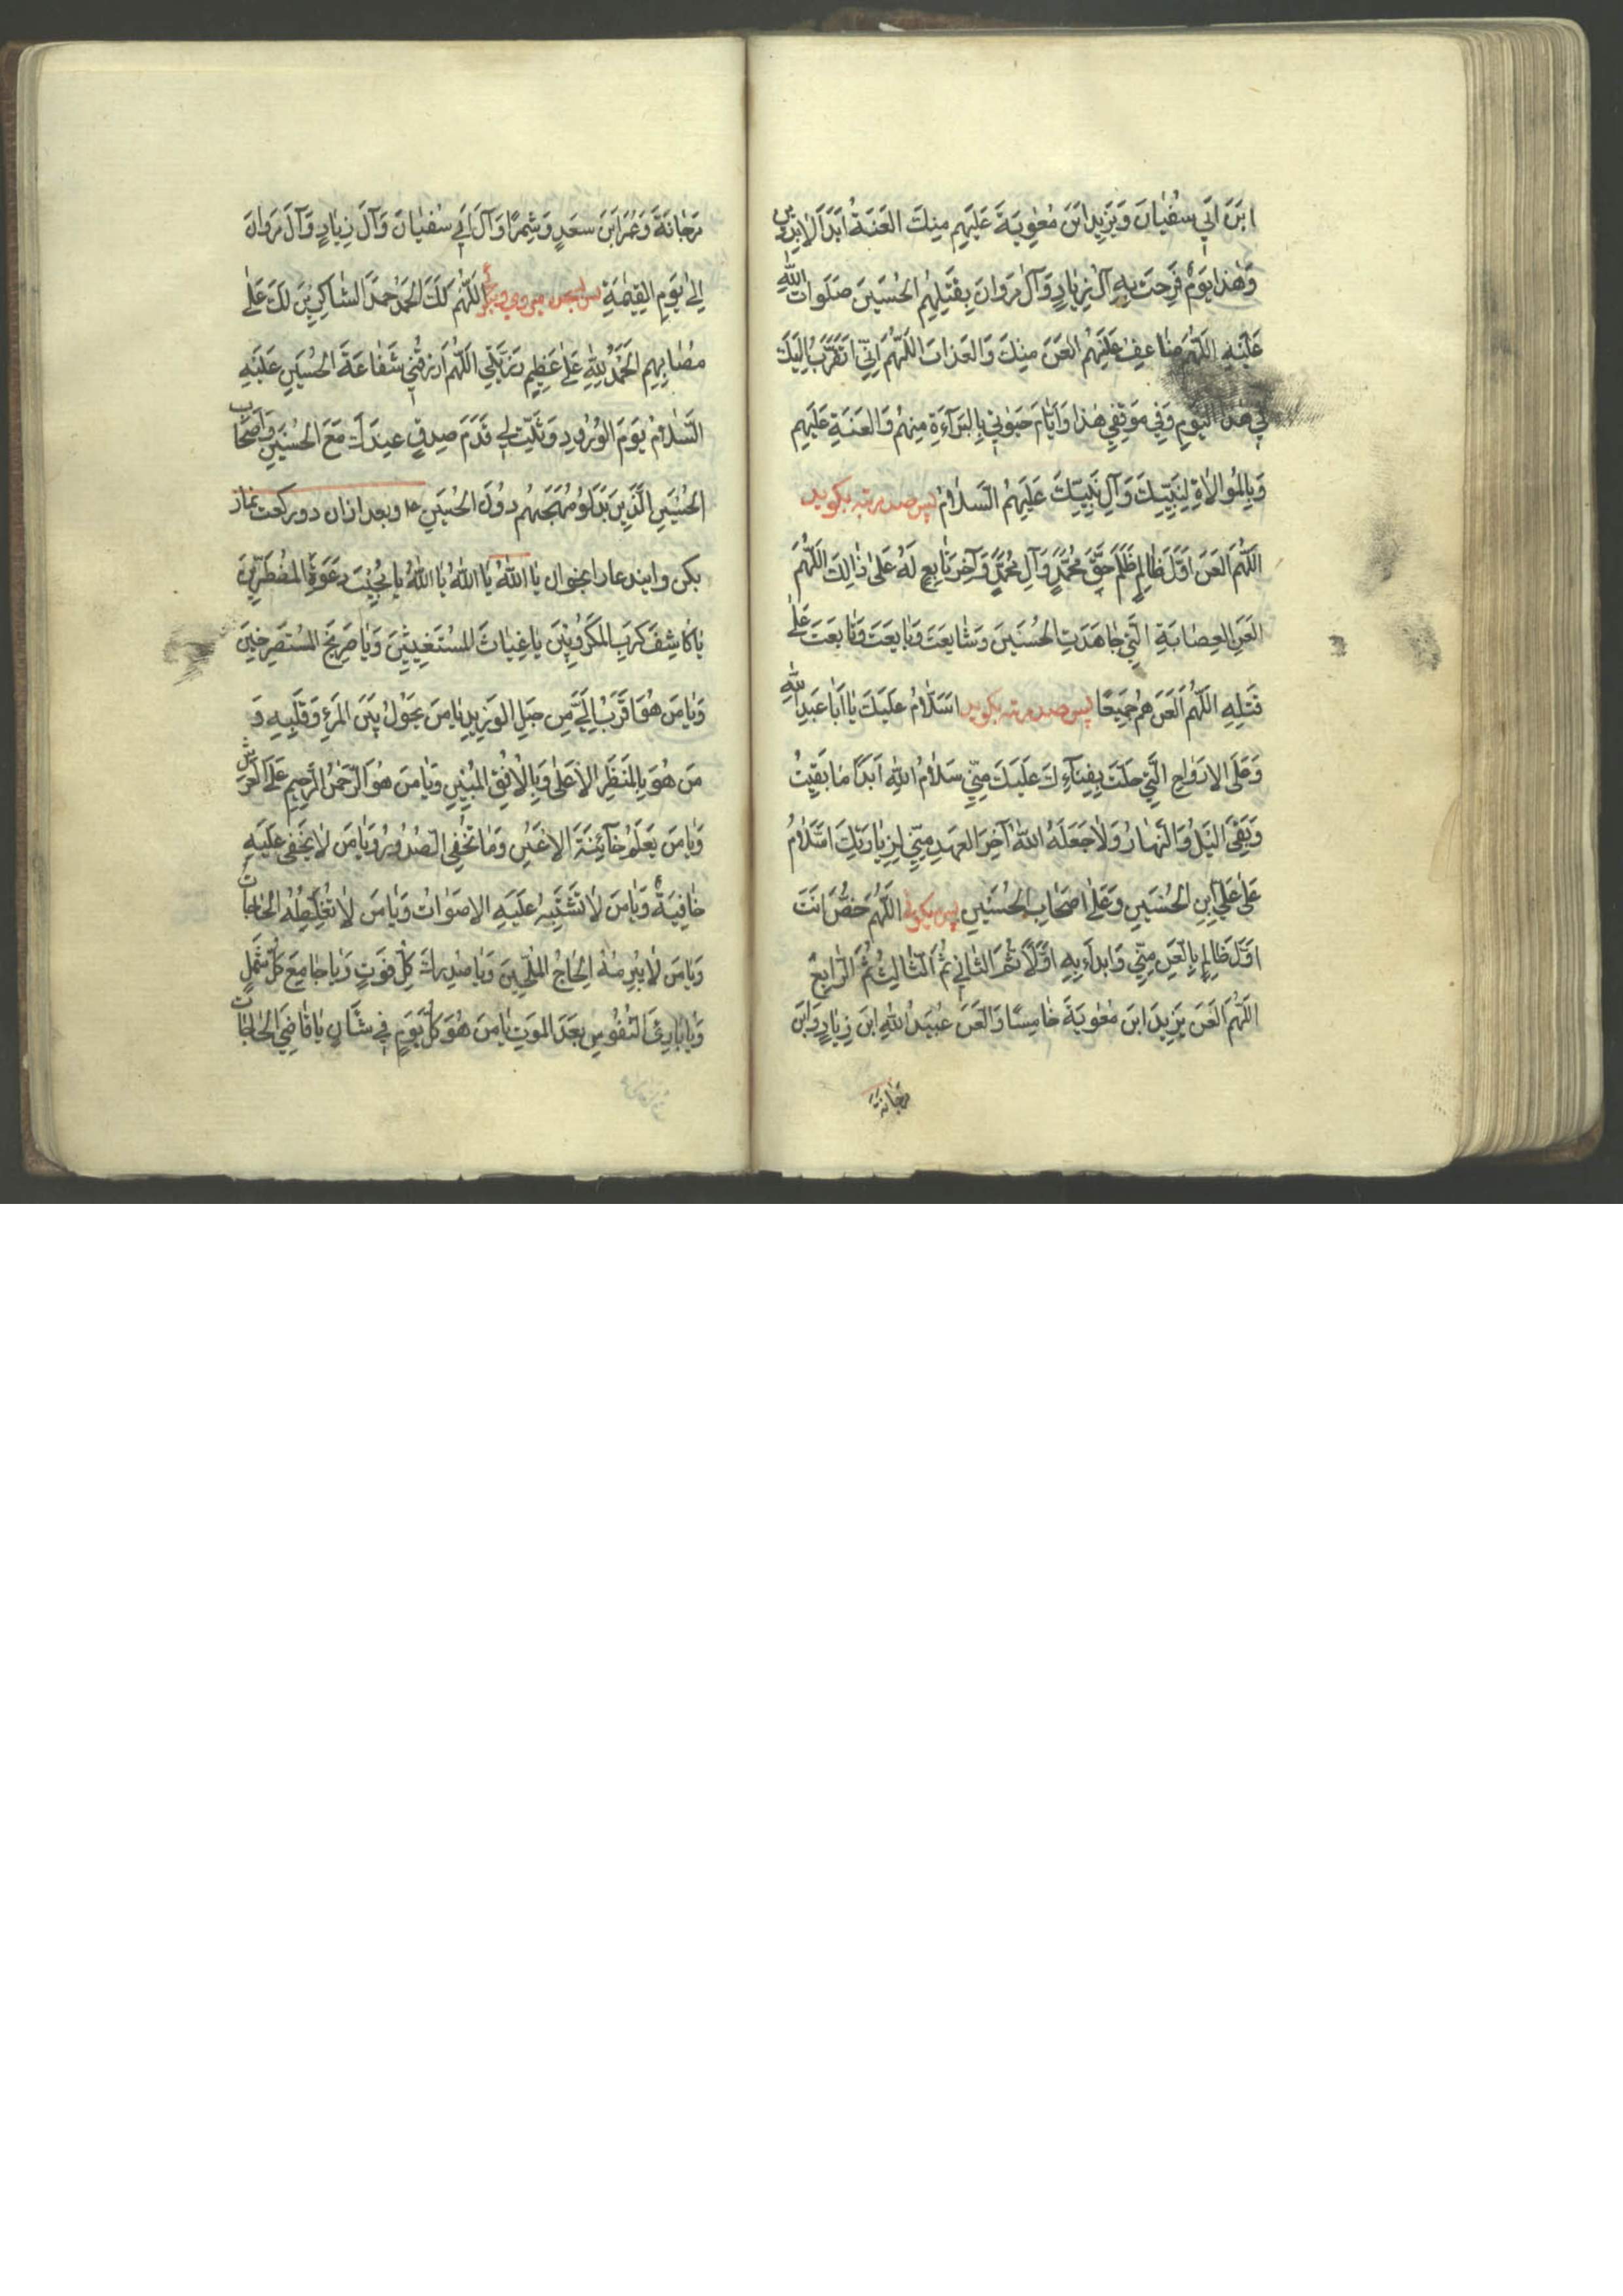 ابْنَ اَبِي سُفْيَانَ وَيَزِيدِ ابْنَ مُعٰوِيَةَ عَلَيْهِمْ مِنْكَ الْعَنَةُ اَبَدَ الْاٰبِدِينَ
وَهٰذَا يَوْمٌ فَرِحَتْ بِهِ آلُ زِيَادٍ وَآلُ مَرْوَانَ بِقَتْلِهِمُ الْحُسَيْنَ صَلَوَاتُ اللّٰهِ
عَلَيْهِ اَللّٰهُمَّ ضَاعِفْ عَلَيْهِمُ الْعَنَ مِنْكَ وَالْعَذَابَ اَللّٰهُمَّ اِنِّي اَتَقَرَّبُ اِلَيْكَ
فِي هٰذَا الْيَوْمِ وَفِي مَوْقِفِي هٰذَا وَاَيَّامِ حَيٰوتِي بِالْبَرَآءَةِ مِنْهُمْ وَالْعَنَةِ عَلَيْهِمْ
وَبِالْمُوَالَاةِ لِنَبِيِّكَ وَآلِ نَبِيِّكَ عَلَيْهِمُ السَّلَامُ پس صد مرتبه بكويد
اَللّٰهُمَّ الْعَنْ اَوَّلَ ظَالِمٍ ظَلَمَ حَقَّ مُحَمَّدٍ وَآلِ مُحَمَّدٍ وَآخِرَ تَابِعٍ لَهُ عَلٰى ذٰالِكَ اَللّٰهُمَّ
الْعَنِ الْعِصَابَةِ الَّتِي جَاهَدَتِ الْحُسَيْنَ وَشَايَعَتْ وَبَايَعَتْ وَتَابَعَتْ عَلٰى
قَتْلِهِ اَللّٰهُمَّ الْعَنْهُمْ جَمِيعًا پس صد مرتبه بكويد اَسَّلَامُ عَلَيْكَ يَا اَبَا عَبْدِ اللّٰهِ
وَعَلَى الْاَرْوَاحِ الَّتِي حَلَّتْ بِفِنَآءِكَ عَلَيْكَ مِنِّي سَلَامُ اللّٰهِ اَبَدًا مَا بَقِيتُ
وَبَقِيَ الَّيْلُ وَالنَّهَارُ وَلَا جَعَلَهُ اللّٰهُ آخِرَ الْعَهْدِ مِنِّي لِزِيَارَتِكَ اَسَّلَامُ
عَلٰى عَلِيِّ ابْنِ الْحُسَيْنِ وَعَلٰى اَصْحَابِ الْحُسَيْنِ پس ميكوئي اَللّٰهُمَّ خُصَّ اَنْتَ
اَوَّلَ ظَالِمٍ بِالْعَنِ مِنِّي وَابْدَاءْ بِهِ اَوَّلًا ثُمَّ الثَّانِي ثُمَّ الثَّالِثُ ثُمَّ الرَّابِعُ
اَللّٰهُمَّ الْعَنْ يَزِيدَ ابْنَ مُعٰوِيَةَ خَامِسًا وَالْعَنْ عُبَيْدُ اللّٰهِ ابْنَ زِيَادٍ وَابْنَ
مرجانة
مَرْجَانَةَ وَعُمَرَ ابْنَ سَعْدٍ وَشِمْرًا وَآلَ اَبِي سُفْيَانَ وَآلَ زِيَادٍ وَآلَ مَرْوَانَ
اِلٰى يَوْمِ الْقِيٰمَةِ پس بسجده ميروي وميكوئي اَللّٰهُمَّ لَكَ الْحَمْدُ حَمْدَ الشَّاكِرِينَ لَكَ عَلٰى
مُصَابِهِمْ اَلْحَمْدُ لِلّٰهِ عَلٰى عَظِيمِ رَزِيَّتِي اَللّٰهُمَّ ارْزُقْنِي شَفَاعَةَ الْحُسَيْنِ عَلَيْهِ
السَّلَامُ يَوْمَ الْوُرُودِ وَثَبِّتْ لِي قَدَمَ صِدْقٍ عِنْدَكَ مَعَ الْحُسَيْنِ وَاَصْحَابِ
الْحُسَيْنِ الَّذِينَ بَذَلُوا مُهَجَهُمْ دُونَ الْحُسَيْنِ ع وبعد ازان دو ركعت نماز
بكن و ايندعا را بخوان يَا اَللّٰهُ يَا اَللّٰهُ يَا اَللّٰهُ يَا مُجِيبَ دَعْوَةِ الْمُضْطَرِّينَ
يَا كَاشِفَ كُرَبِ الْمَكْرُوبِينَ يَا غِيَاثَ الْمُسْتَغِيثِينَ وَيَا صَرِيخَ الْمُسْتَصْرِخِينَ
وَيَا مَنْ هُوَ اَقْرَبُ اِلَيَّ مِنْ حَبْلِ الْوَرِيدِ يَا مَنْ يَحُولُ بَيْنَ الْمَرْءِ وَقَلْبِهِ وَ
مَنْ هُوَ بِالْمَنْظَرِ الْاَعْلٰى وَبِالْاُفُقِ الْمُبِينِ وَيَا مَنْ هُوَ الرَّحْمٰنُ الرَّحِيمِ عَلَى الْعَرْشِ
وَيَا مَنْ يَعْلَمُ خَآئِنَةَ الْاَعْيُنِ وَمَا تُخْفِي الصُّدُورُ وَيَا مَنْ لَا يَخْفٰى عَلَيْهِ
خَافِيَةٌ وَيَا مَنْ لَا تَشْتَبِهُ عَلَيْهِ الْاَصْوَاتُ وَيَا مَنْ لَا تُغَلِّطُهُ الْحَاجَاتُ
وَيَا مَنْ لَا يُبْرِمُهُ اِلْحَاحُ الْمُلِحِّينَ وَيَا مُدْرِكَ كُلِّ فَوْتٍ وَيَا جَامِعَ كُلِّ شَمْلٍ
وَيَا بَارِئَ النُّفُوسِ بَعْدَ الْمَوْتِ يَا مَنْ هُوَ كُلَّ يَوْمٍ فِي شَانٍ يَا قَاضِيَ الْحَاجَاتِ